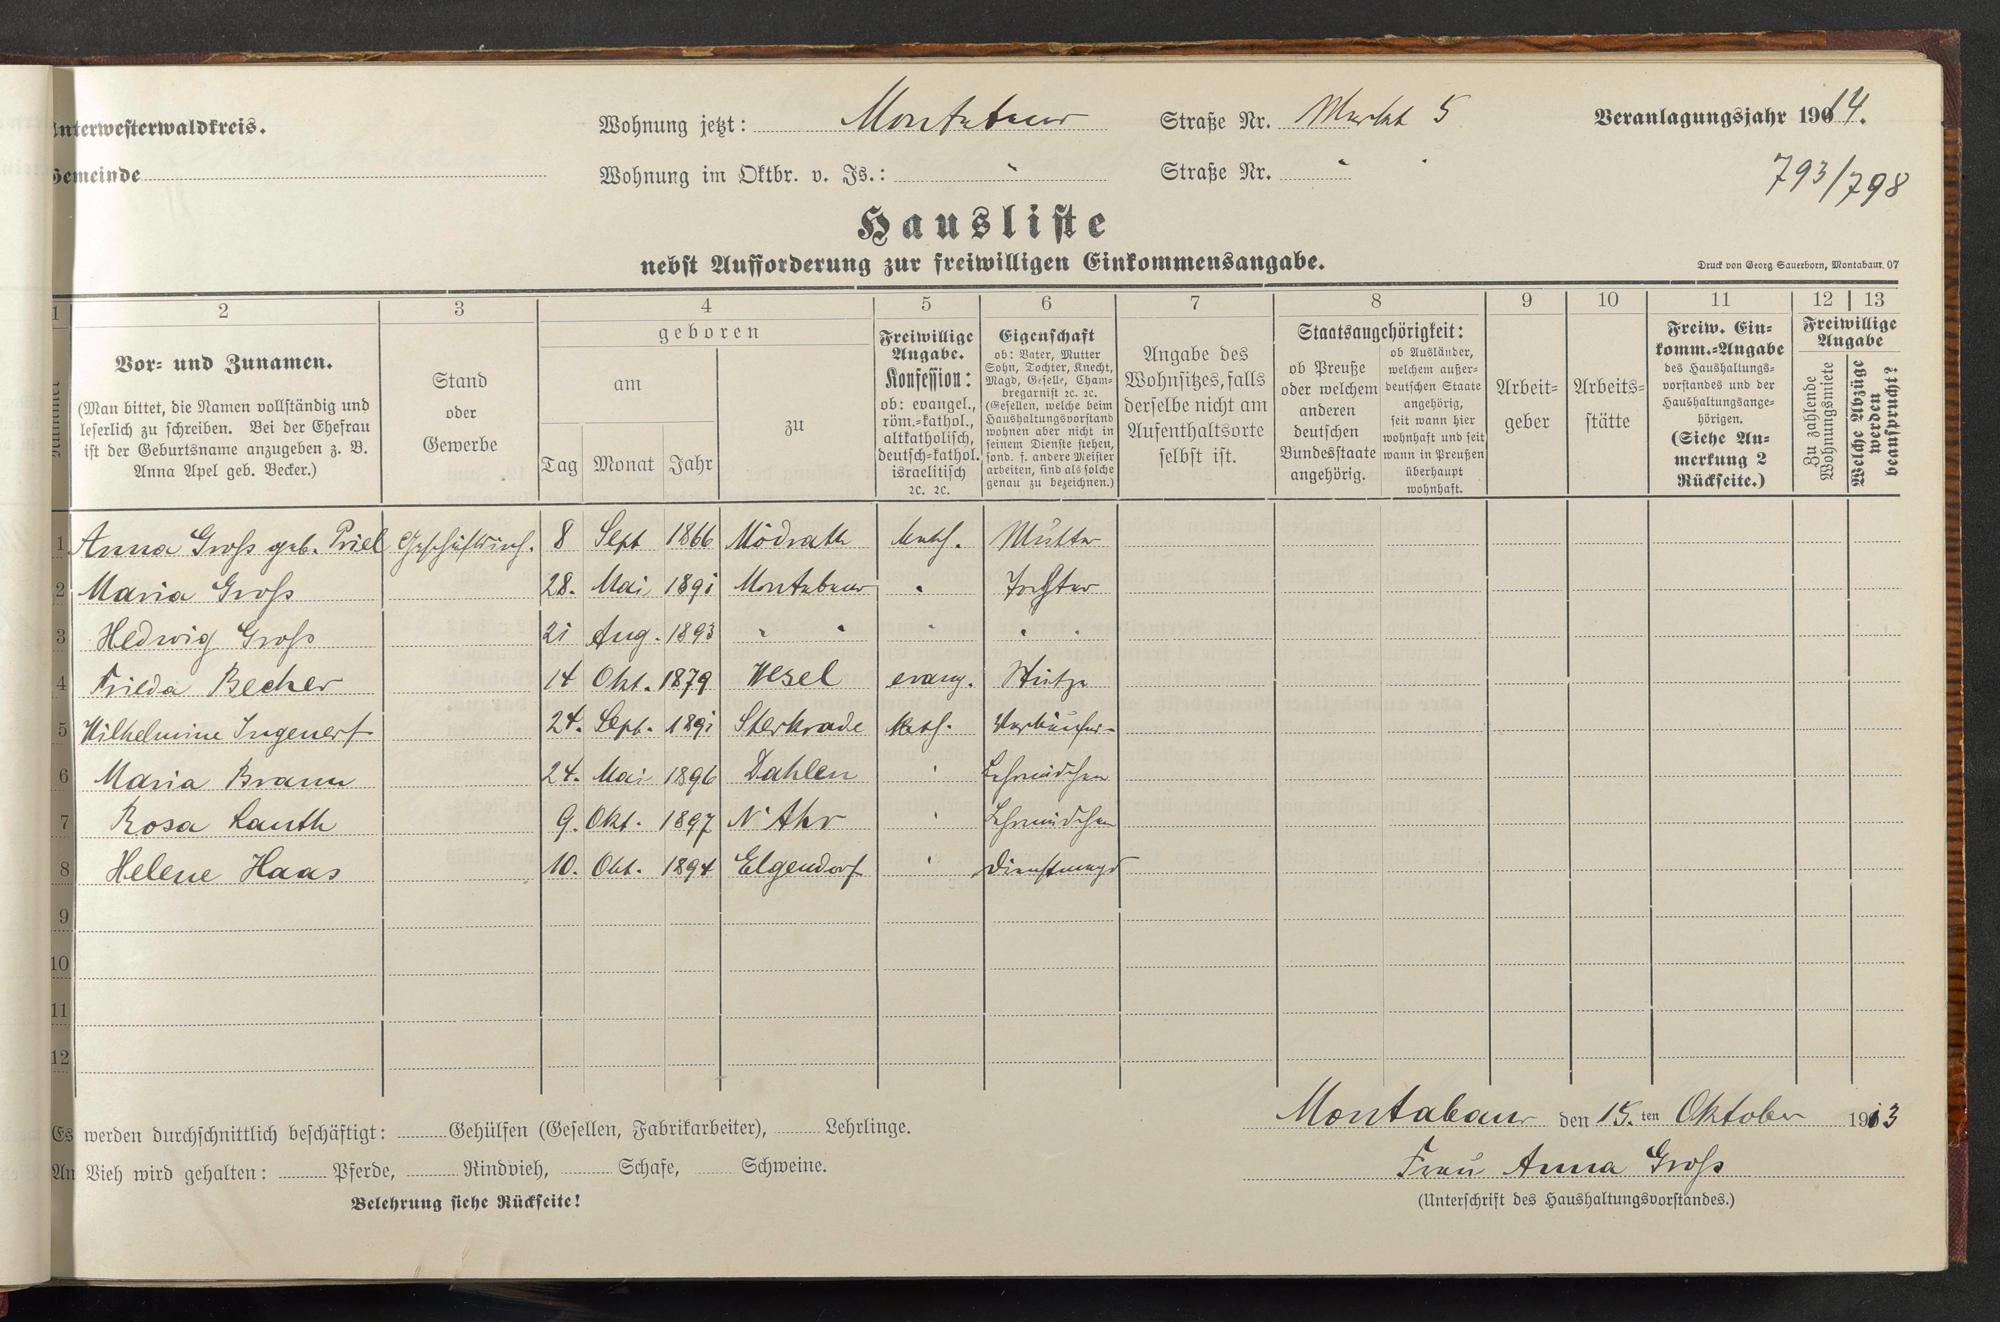 Unterwesterwaldkreis. Wohnung jetzt: Montabaur Straße Nr. Markt 5 Veranlagungsjahr 1914.
Gemeinde Wohnung im Oktbr. v. Js.: " Straße Nr. " "
793/798
Hausliste
nebst Aufforderung zur freiwilligen Einkommensangabe.
Druck von Georg Sauerborn, Montabaur. 07
1 2 3 4 5 6 7 8 9 10 11 12 13
Nummer
Vor- und Zunamen.
(Man bittet, die Namen vollständig und
leserlich zu schreiben. Bei der Ehefrau
ist der Geburtsname anzugeben z. B.
Anna Apel geb. Becker.)
Stand
oder
Gewerbe
geboren
am
Tag Monat Jahr
zu
Freiwillige
Angabe.
Konfession:
ob: evangel.,
röm.-kathol.,
altkatholisch,
deutsch-kathol.
israelitisch
ꝛc. ꝛc.
Eigenschaft
ob: Vater, Mutter
Sohn, Tochter, Knecht,
Magd, Geselle, Cham-
bregarnist ꝛc. ꝛc.
(Gesellen, welche beim
Haushaltungsvorstand
wohnen aber nicht in
seinem Dienste stehen,
sond. f. andere Meister
arbeiten, sind als solche
genau zu bezeichnen.)
Angabe des
Wohnsitzes, falls
derselbe nicht am
Aufenthaltsorte
selbst ist.
Staatsangehörigkeit:
ob Preuße
oder welchem
anderen
deutschen
Bundesstaate
angehörig.
ob Ausländer,
welchem außer-
deutschen Staate
angehörig,
seit wann hier
wohnhaft und seit
wann in Preußen
überhaupt
wohnhaft.
Arbeit-
geber
Arbeits-
stätte
Freiw. Ein-
komm.-Angabe
des Haushaltungs-
vorstandes und der
Haushaltungsange-
hörigen.
(Siehe An-
merkung 2
Rückseite.)
Freiwillige
Angabe
Zu zahlende
Wohnungsmiete
Welche Abzüge
werden
beansprucht?
1 Anna Groß geb. Priel Geschäftsinh. 8 Sept 1866 Mödrath kath. Mutter
2 Maria Groß 28. Mai 1891 Montabaur " Tochter
3 Hedwig Groß 21 Aug. 1893 " " " " "
4 Frieda Becker 14 Okt. 1879 Wesel evang. Stütze
5 Wilhelmine Ingenerf 24. Sept. 1891 Sterkrade kath. Verkäufer-
6 Maria Braun 24. Mai 1896 Dahlen " Lehrmädchen
7 Rosa Lauth 9. Okt. 1897 N' Ahr " Lehrmädchen
8 Helene Haas 10. Okt. 1894 Elgendorf " Dienstmagd
9
10
11
12
Montabaur den 15. ten Oktober 1913
Es werden durchschnittlich beschäftigt: Gehülfen (Gesellen, Fabrikarbeiter), Lehrlinge.
Frau Anna Groß
An Vieh wird gehalten: Pferde, Rindvieh, Schafe, Schweine.
Belehrung siehe Rückseite! (Unterschrift des Haushaltungsvorstandes.)